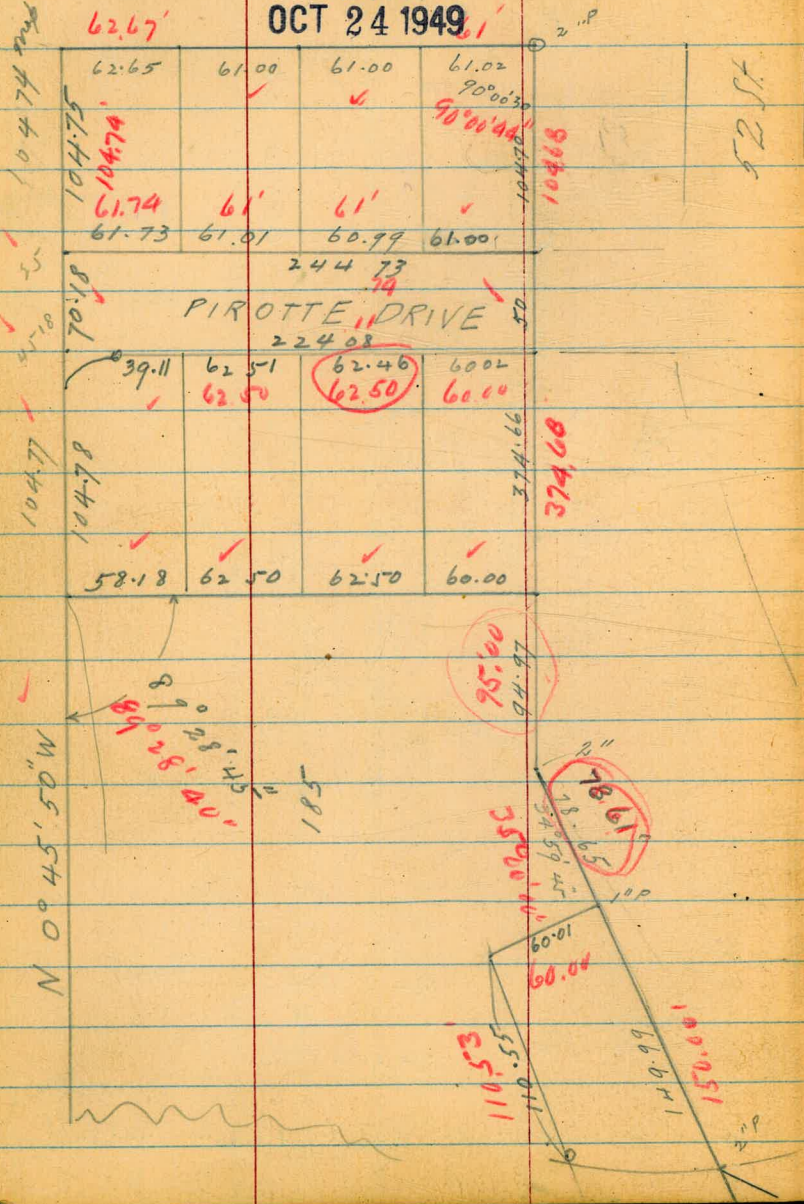 OCT 24 1949
62.67'
61'
2"P
104 74 ms
62.65 61.00 61.00 61.02
90°00'30
90°00'44"
52 St
104.75
104.74'
104.70
104.68
61.74 61' 61'
61.73 61.01 60.99 61.00
244 73
.79
70.18
PIROTTE DRIVE
50
11
224 08
45.18
39.11 62 51 62.46 60 02
62.50 62.50 60.00
374.66
374.68
104.77
104.78
58.18 62 50 62.50 60.00
95.00
94.97
89° 28' 45"
89° 28' 40"
185
N 0° 45' 50" W
2"
78.61'
78.65
34°59'45"
1"P
60.01
60.00
110.53'
110.55
149.99
150.00'
2"P